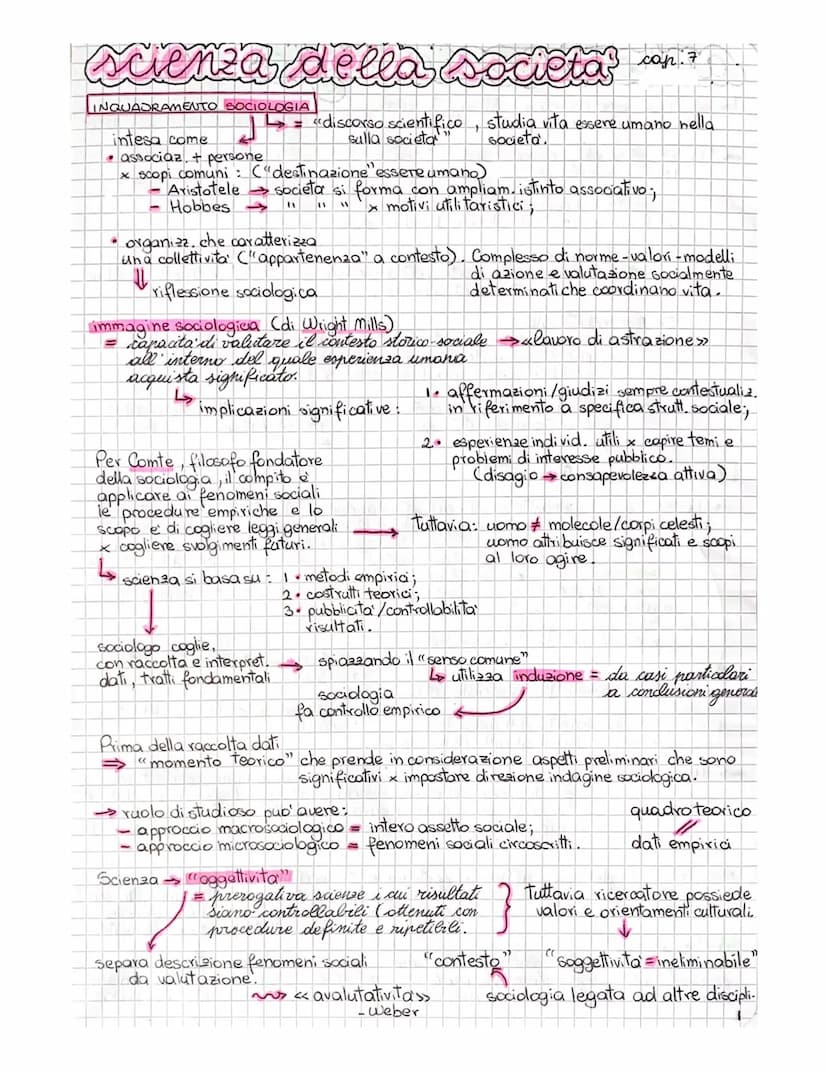 scienza della società cap. 7
INQUADRAMENTO SOCIOLOGIA
↳ = "discorso scientifico, studia vita essere umano nella
intesa come sulla società" società.
• associaz. + persone
x scopi comuni: ("destinazione" essere umano)
- Aristotele → società si forma con ampliam. istinto associativo;
- Hobbes → " " " x motivi utilitaristici;
• organizz. che caratterizza
una collettività ("appartenenza" a contesto). Complesso di norme-valori-modelli
di azione e valutazione socialmente
⇓ riflessione sociologica determinati che coordinano vita.
immagine sociologica (di Wright Mills)
= capacità di valutare il contesto storico-sociale → «lavoro di astrazione»
all'interno del quale esperienza umana
acquista significato.
↳ implicazioni significative:
1. affermazioni/giudizi sempre contestualiz.
in riferimento a specifica strutt. sociale;
2. esperienze individ. utili x capire temi e
problemi di interesse pubblico.
(disagio → consapevolezza attiva)
Per Comte, filosofo fondatore
della sociologia, il compito è
applicare ai fenomeni sociali
le procedure empiriche e lo
scopo è di cogliere leggi generali →
x cogliere svolgimenti futuri.
Tuttavia: uomo ≠ molecole/corpi celesti;
uomo attribuisce significati e scopi
al loro agire.
↳ scienza si basa su: 1. metodi empirici;
2. costrutti teorici;
3. pubblicità/controllabilità
risultati.
sociologo coglie,
con raccolta e interpret. → spiazzando il "senso comune"
dati, tratti fondamentali
↳ utilizza induzione = da casi particolari
a conclusioni general
sociologia
fa controllo empirico
Prima della raccolta dati
⇒ "momento teorico" che prende in considerazione aspetti preliminari che sono
significativi x impostare direzione indagine sociologica.
→ ruolo di studioso può avere:
- approccio macrosociologico = intero assetto sociale;
- approccio microsociologico = fenomeni sociali circoscritti.
quadro teorico
//
dati empirici
Scienza → "oggettività"
= prerogativa scienze i cui risultati
siano controllabili (ottenuti con
procedure definite e ripetibili.
Tuttavia ricercatore possiede
valori e orientamenti culturali.
↓
separa descrizione fenomeni sociali "contesto" "soggettività = ineliminabile"
da valutazione.
«avalutatività» sociologia legata ad altre discipli-
- Weber
1